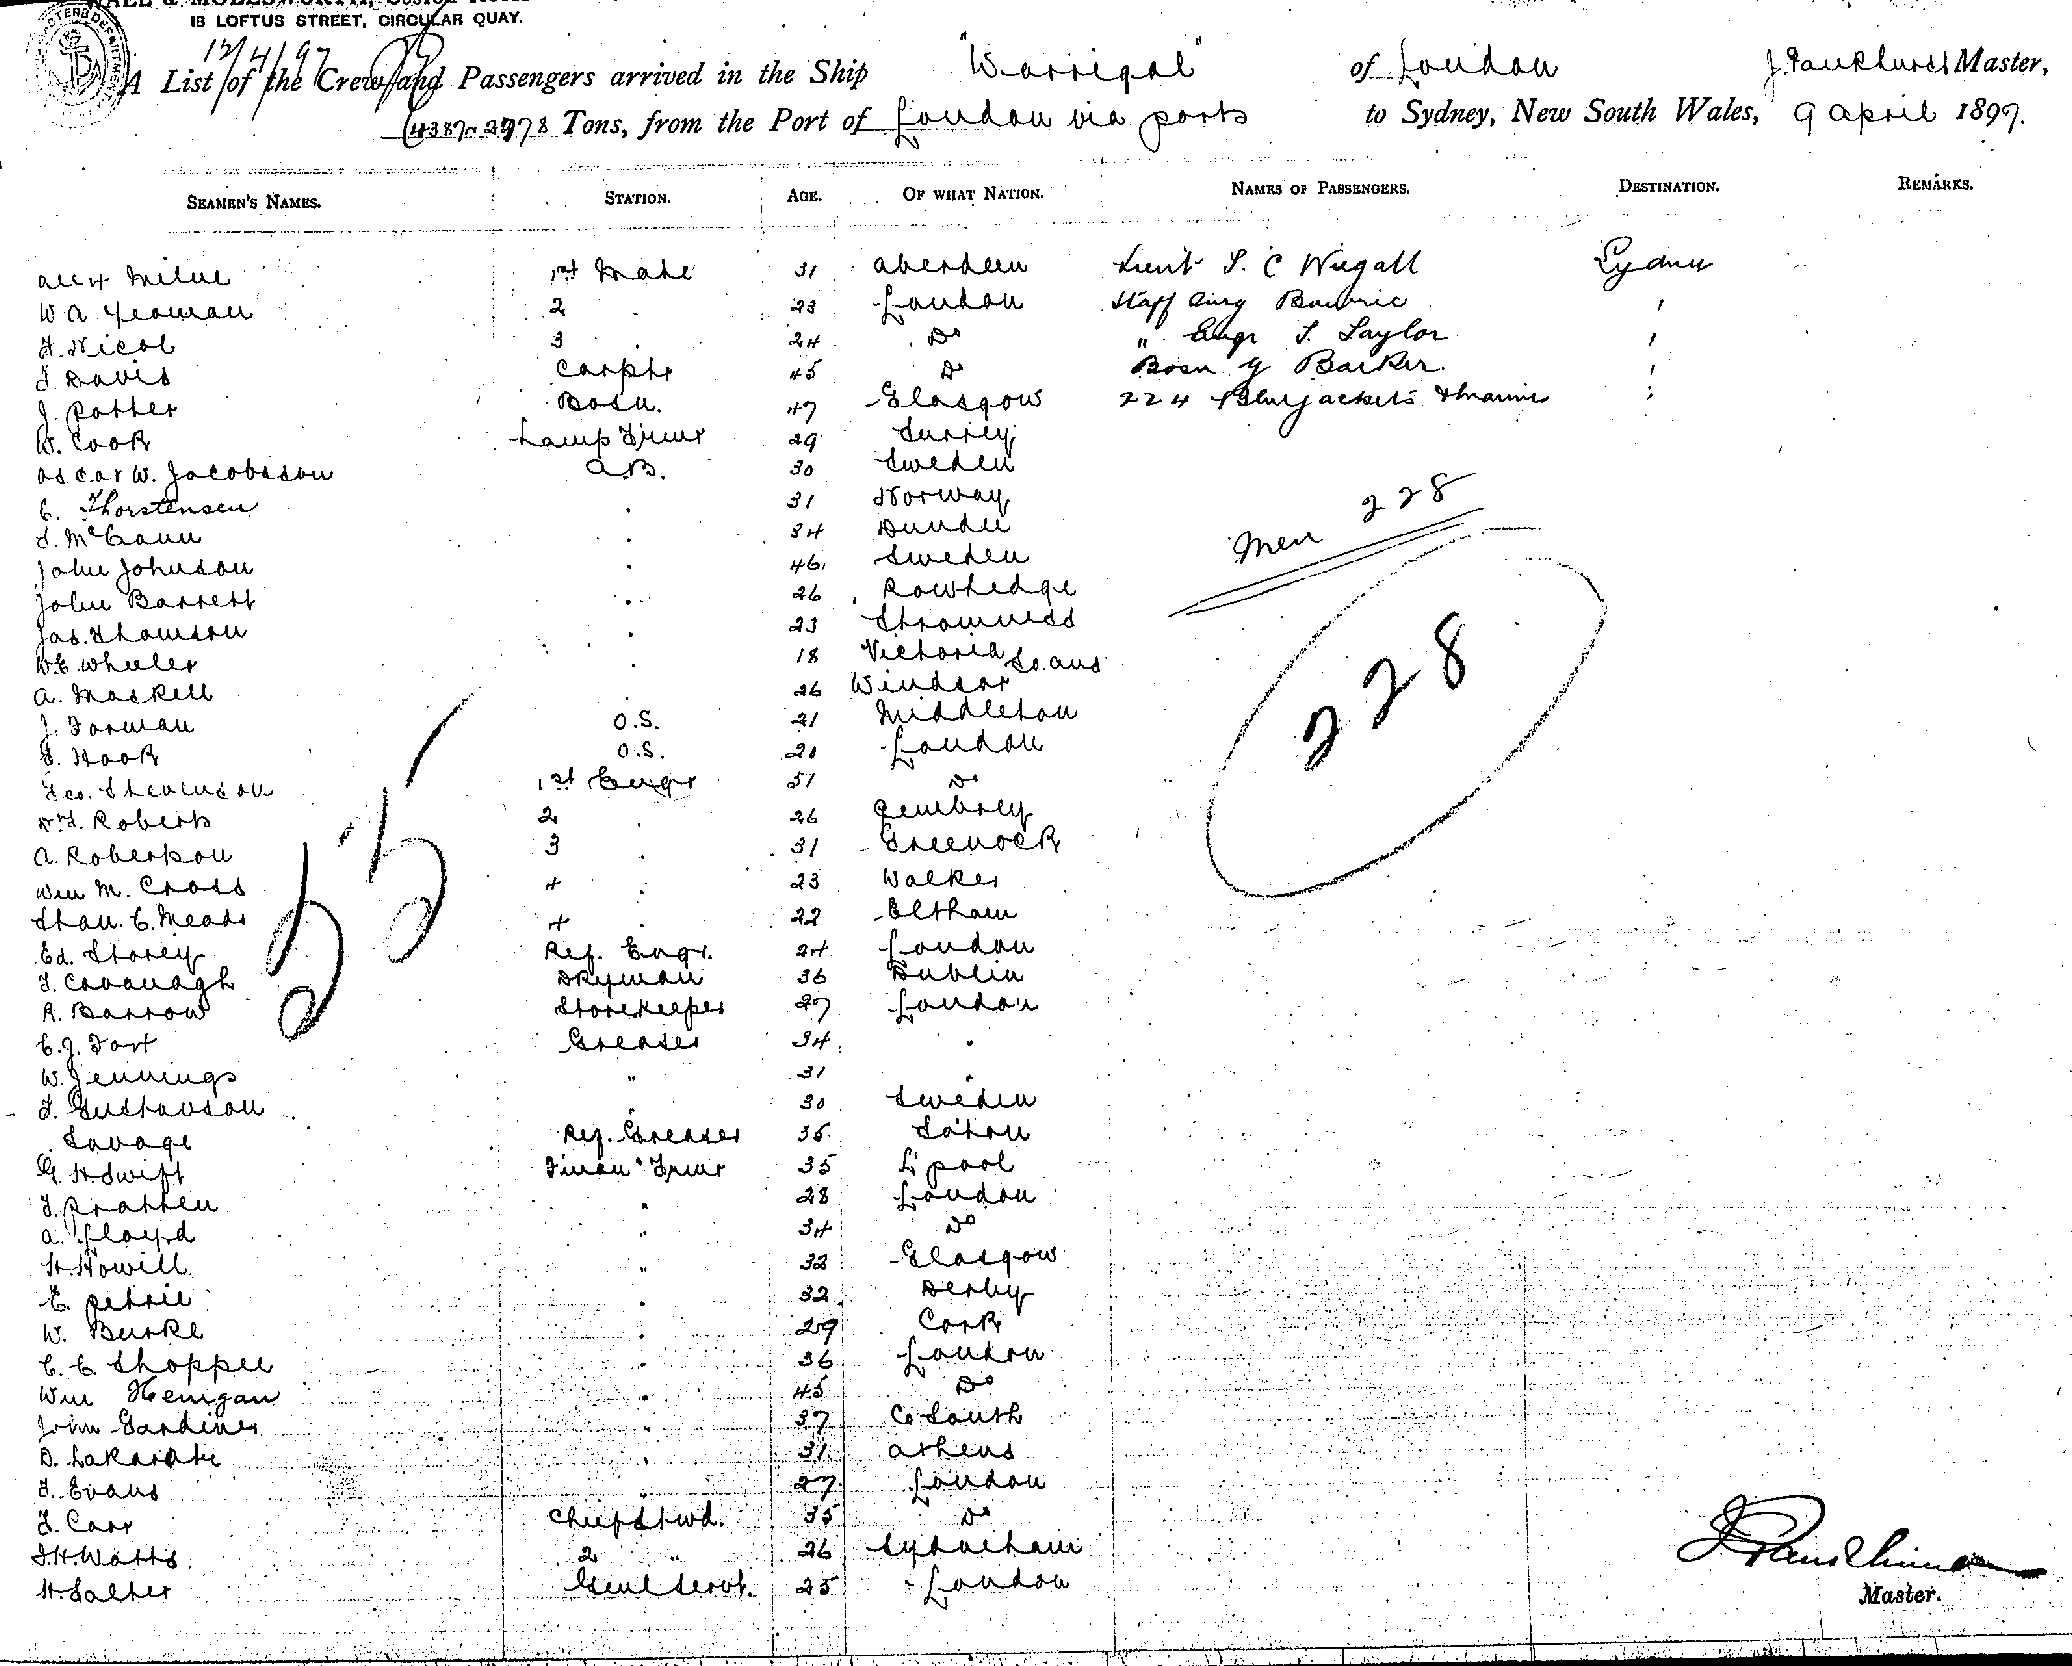 18 LOFTUS STREET, CIRCULAR QUAY.
12/4/97
A List of the Crew and Passengers arrived in the Ship "Warrigal" of London J. Pankhurst Master,
4387-2978 Tons, from the Port of London via ports to Sydney, New South Wales, 9 April 1897.
SEAMEN'S NAMES. STATION. AGE. OF WHAT NATION. NAMES OF PASSENGERS. DESTINATION. REMARKS.
Alex Milne 1st Mate 31 Aberdeen Lieut S. C Wiegall Sydney
W A Yeoman 2 " 23 London Staff Surg "
H. Nicol 3 " 24 Do " Engr T. Taylor "
J Davis Carptr 45 Do Bosn G Barker "
J. Potter Bosn. 47 Glasgow 224 Bluejackets & Marines "
W. Cook Lamp Trimr 29 Surrey
Oscar W. Jacobsson A.B. 30 Sweden
C. Thorstensen " 31 Norway
J. McCann " 34 Dundee
John Johnson " 46 Sweden
John Barrett " 26 Rowhedge
Jas. Thomson " 23 Stromness
W.E Wheeler " 18 Victoria So. Aus
A. Maskell " 26 Windsor
J. Forman O.S. 21 Middleton
S. Hook O.S. 20 London
Geo. Stevenson 1st Engr 51 Do
Roberts 2 " 26 Pembrey
A. Robertson 3 " 31 Greenock
Wm M. Cross 4 " 23 Walker
C. Mears 4 " 22 Eltham
Ed. Storey Ref. Engr. 24 London
T. Cavanagh Dkyman 36 Dublin
R. Barrow Storekeeper 27 London
C.J. Fort Greaser 34 "
W. Jennings " 31 "
F. Gustavson " 30 Sweden
Savage Ref. Greaser 35 So'ton
G. H Swift Firem' Trimr 35 L'pool
T. Pratten " 28 London
A. Lloyd " 34 Do
H. Howill " 32 Glasgow
E. Petrie " 32 Derby
W. Burke " 29 Cork
C. C Shoppee " 36 London
Wm Henigan " 45 Do
John Gardiner " 37 Co Louth
D. " 31 Athens
T. Evans " 27 London
T. Carr Chief Stwd. 35 Do
J.H. Watts 2 " 26 Sydenham
H. Salter Genl Servt. 25 London
Men 228
228
55
J Pankhurst
Master.